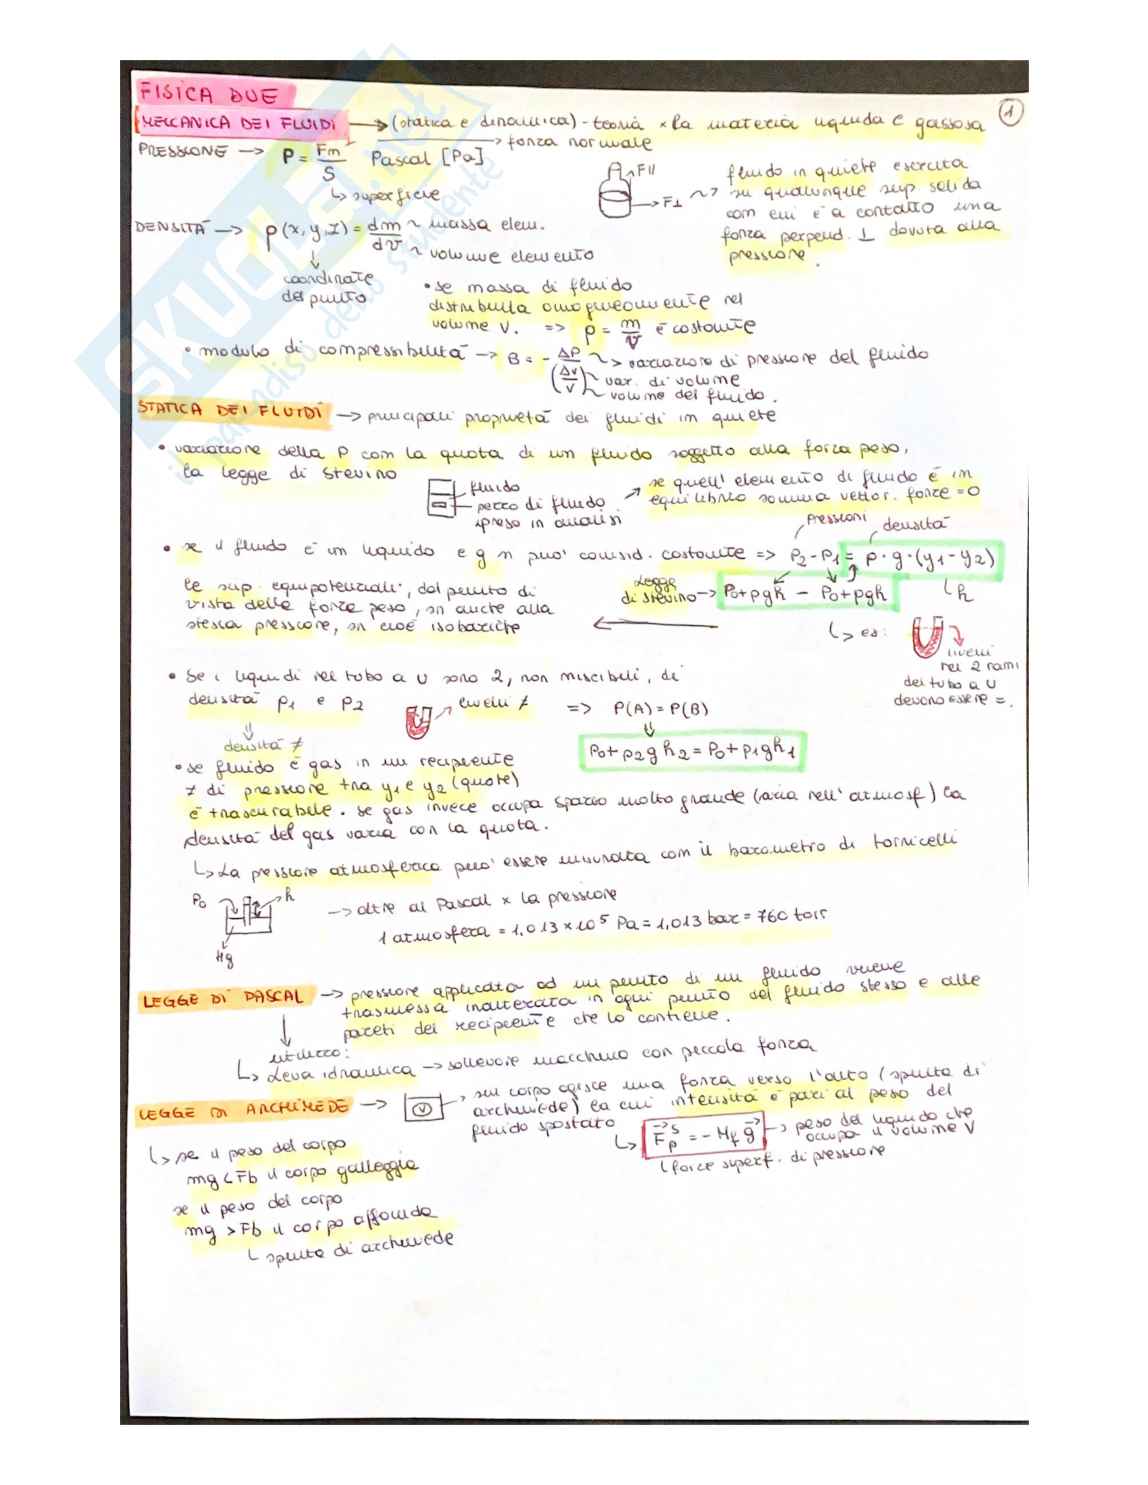 FISICA DUE
1
MECCANICA DEI FLUIDI → (statica e dinamica) - teoria x la materia liquida e gassosa
PRESSIONE → P = Fm/S Pascal [Pa] → forza normale
↳ superficie
F//
F⊥
fluido in quiete esercita
su qualunque sup solida
con cui è a contatto una
forza perpend. ⊥ dovuta alla
pressione.
DENSITÀ → ρ(x,y,z) = dm/dV ~ massa elem.
~ volume elemento
coordinate
del punto
• se massa di fluido
distribuita omogeneamente nel
volume V. => ρ = m/V è costante
• modulo di compressibilità → B = - ΔP/(ΔV/V) ~> variazione di pressione del fluido
var. di volume
volume del fluido.
STATICA DEI FLUIDI → principali proprietà dei fluidi in quiete
• variazione della P con la quota di un fluido soggetto alla forza peso,
la legge di Stevino
fluido
pezzo di fluido
preso in analisi
se quell' elemento di fluido è in
equilibrio somma vettor. forze = 0
pressioni
densità
• se il fluido è un liquido e g n può consid. costante => P2-P1 = ρ·g·(y1-y2)
h
Legge
di Stevino → P0+ρgh - P0+ρgh
le sup. equipotenziali, dal punto di
vista della forza peso, sn anche alla
stessa pressione, sn cioè isobariche
↳ es:
livelli
nei 2 rami
del tubo a U
devono essere =.
• Se i liquidi nel tubo a U sono 2, non miscibili, di
densità ρ1 e ρ2
livelli ≠
=> P(A) = P(B)
densità ≠
P0+ρ2gh2 = P0+ρ1gh1
• se fluido è gas in un recipiente
≠ di pressione tra y1 e y2 (quote)
è trascurabile. se gas invece occupa spazio molto grande (aria nell' atmosf) la
densità del gas varia con la quota.
↳ La pressione atmosferica può essere misurata con il barometro di Torricelli
P0
h
Hg
→ oltre al Pascal x la pressione
1 atmosfera = 1,013 x 10⁵ Pa = 1,013 bar = 760 torr
LEGGE DI PASCAL → pressione applicata ad un punto di un fluido viene
trasmessa inalterata in ogni punto del fluido stesso e alle
pareti del recipiente che lo contiene.
utilizzo:
↳ Leva idraulica → sollevare macchina con piccola forza
LEGGE DI ARCHIMEDE → V
sul corpo agisce una forza verso l'alto (spinta di
archimede) la cui intensità è pari al peso del
fluido spostato
↳ Fpˢ = - Mf g → peso del liquido che
occupa il volume V
forze superf. di pressione
↳ se il peso del corpo
mg < Fb il corpo galleggia
se il peso del corpo
mg > Fb il corpo affonda
↳ spinta di archimede
SKUOLA.net
il paradiso dello studente